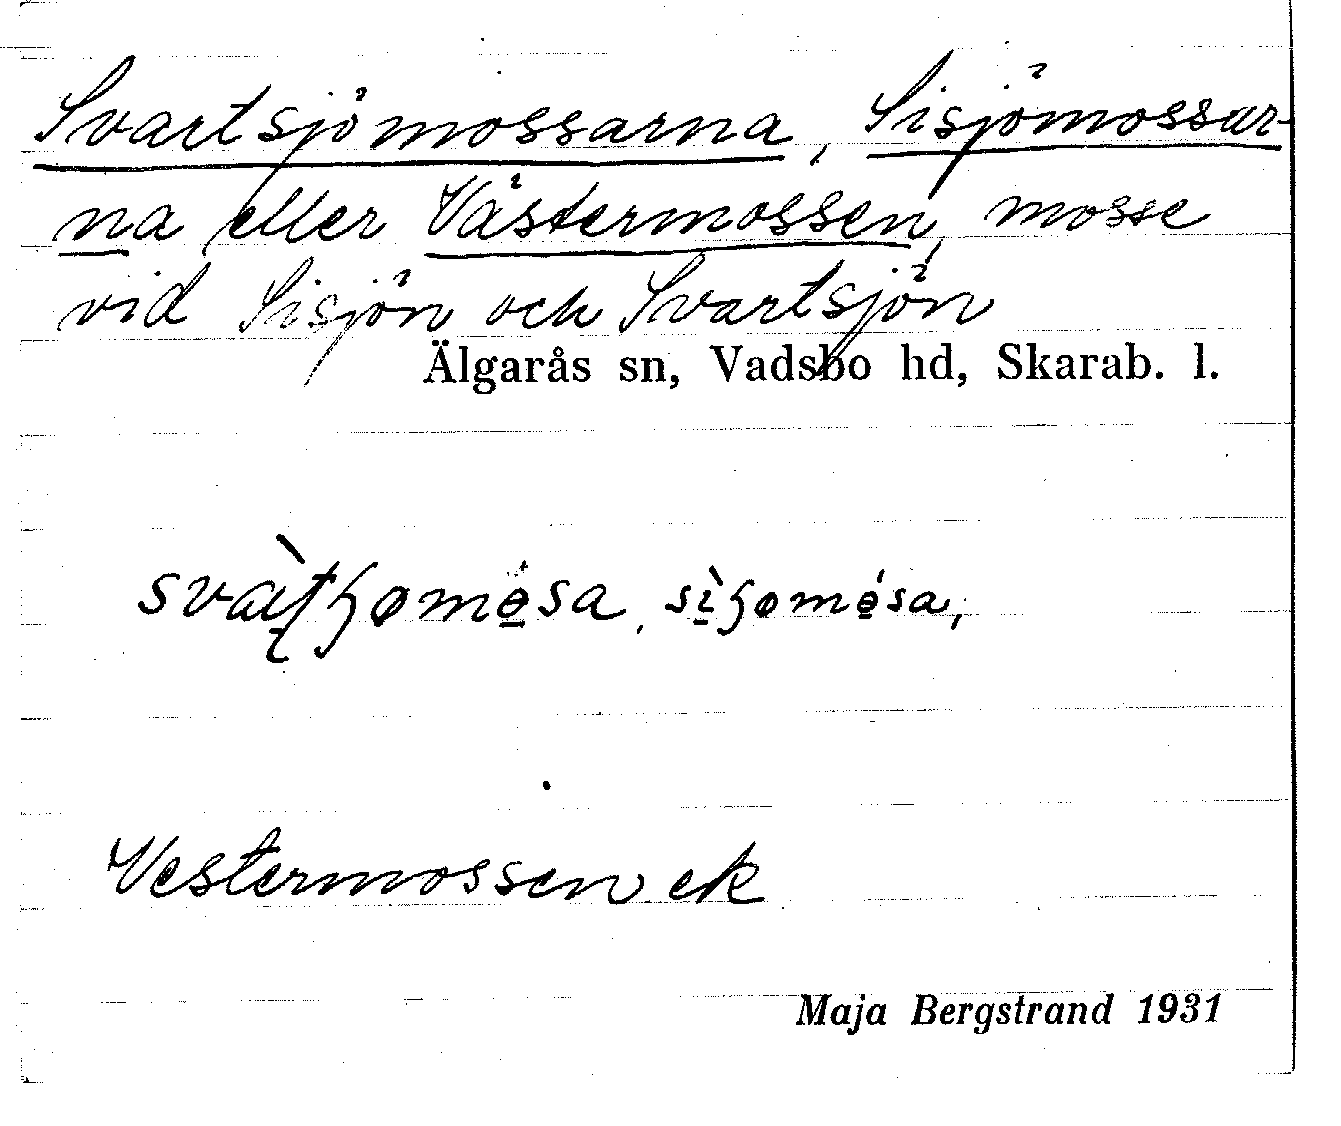 Svartsjömossarna, Sisjömossar-
na eller Västermossen, mosse
vid Sisjön och Svartsjön
Älgarås sn, Vadsbo hd, Skarab. l.
Vestermossen ek
Maja Bergstrand 1931